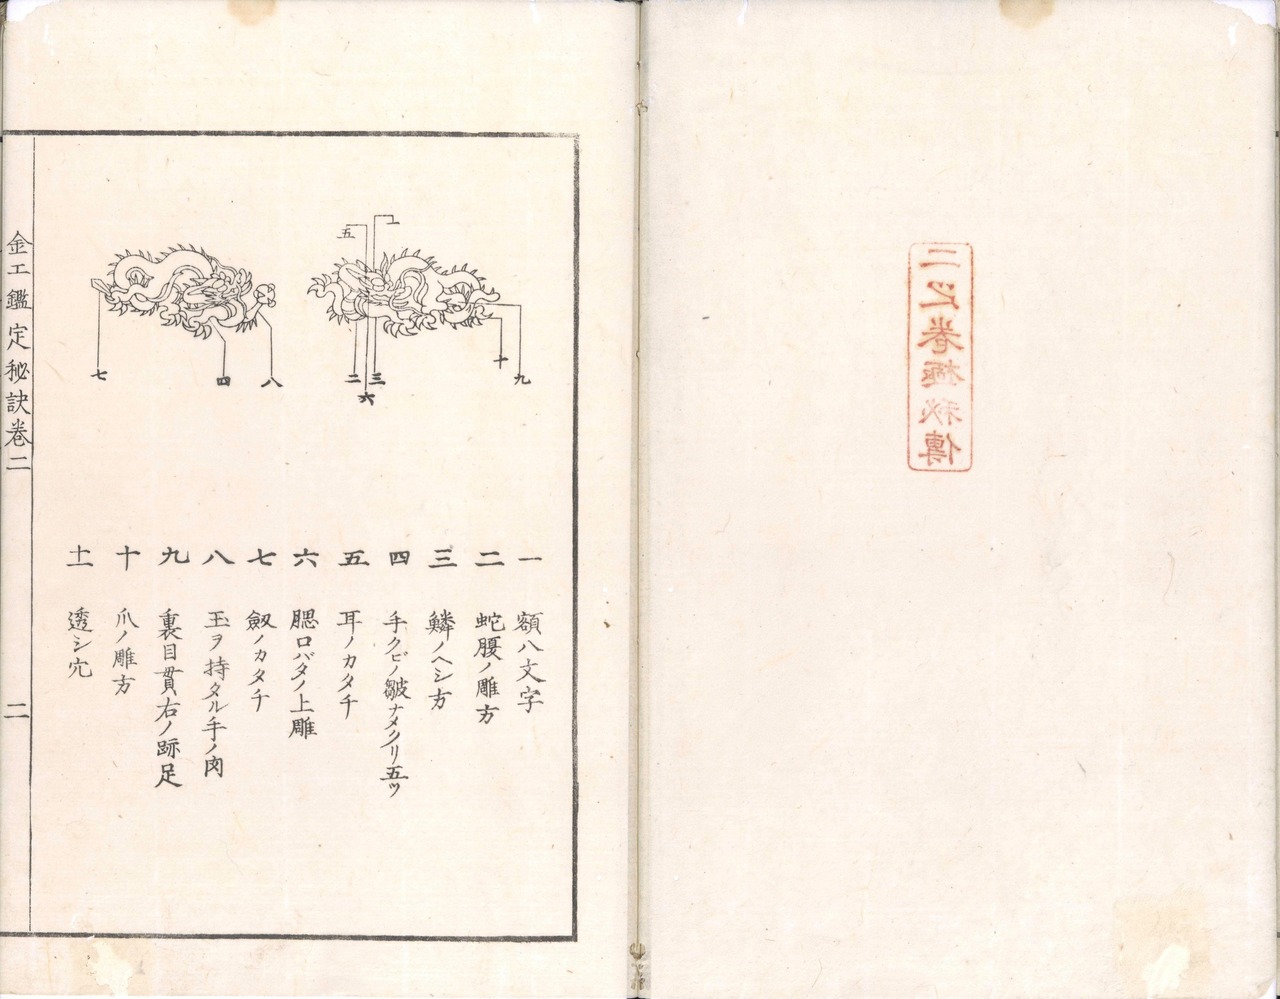 二之巻極秘傳
一
五
二
三
六
十
九
七
四
八
一 額八文字
二 蛇腹ノ雕方
三 鱗ノヘシ方
四 手クビノ皺ナメクリ五ツ
五 耳ノカタチ
六 腮口バタノ上雕
七 劔ノカタチ
八 玉ヲ持タル手ノ肉
九 裏目貫右ノ跡足
十 爪ノ雕方
十一 透シ穴
金工鑑定秘訣巻二
二